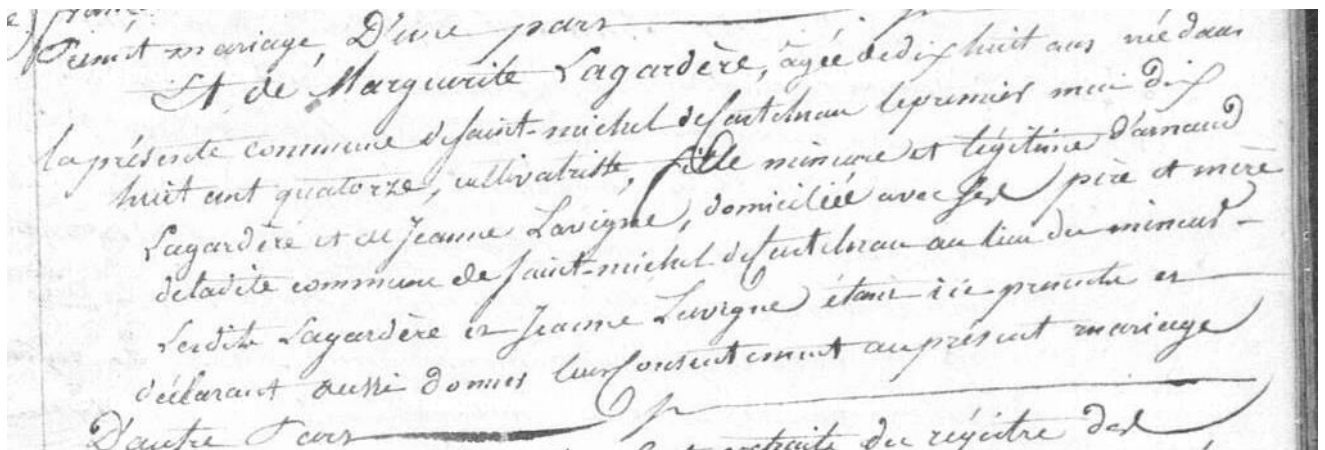 présent mariage, D'une part
Et de Marguerite Lagardère, agée de dix huit ans née dans
la présente commune de saint-michel de Castelnau le premier mai dix
huit cent quatorze, cultivatrisse, fille mineure et légitime d'arnaud
Lagardère et de Jeanne Lavigne, domiciliée avec ses père et mère
de ladite commune de saint-michel de Castelnau au lieu du
Lesdits Lagardère et Jeanne Lavigne étant ici présents et
déclarant aussi donner leur Consentement au présent mariage
D'autre Part
extraits du régistre des